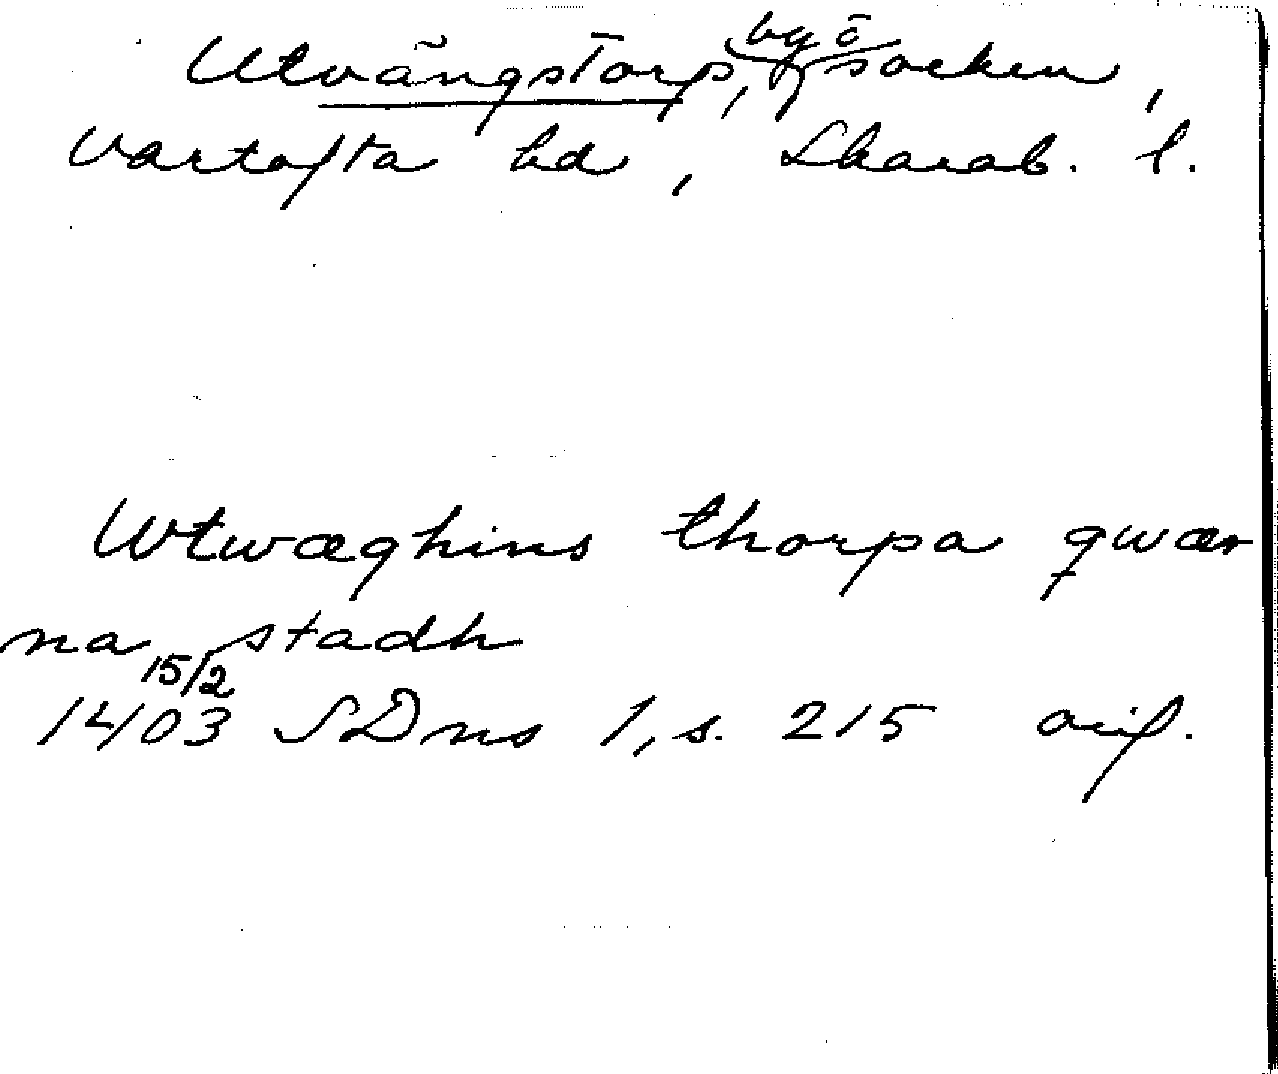 Utvängstorp, by o socken,
Vartofta hd, Skarab. l.
Wtwæghins thorpa qwær
na stadh
15/2
1403 SDns 1, s. 215 orig.